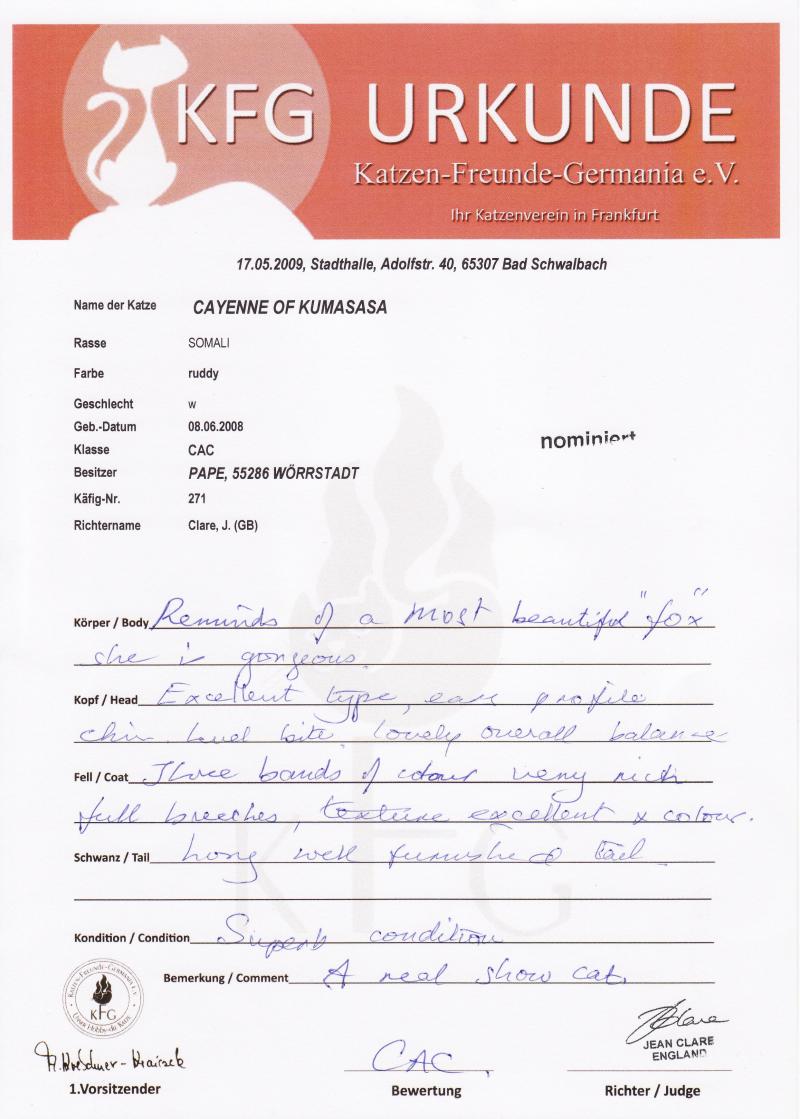 KFG URKUNDE
Katzen-Freunde-Germania e.V.
Ihr Katzenverein in Frankfurt
17.05.2009, Stadthalle, Adolfstr. 40, 65307 Bad Schwalbach
Name der Katze CAYENNE OF KUMASASA
Rasse SOMALI
Farbe ruddy
Geschlecht w
Geb.-Datum 08.06.2008
Klasse CAC
Besitzer PAPE, 55286 WÖRRSTADT
Käfig-Nr. 271
Richtername Clare, J. (GB)
nominiert
Körper / Body Reminds of a most beautiful "fox"
she is gorgeous.
Kopf / Head Excellent type, ears profile
chin level bite. lovely overall balance
Fell / Coat Three bands of colour very rich
full breeches, texture excellent & colour.
Schwanz / Tail Long well furnished tail
Kondition / Condition Superb condition
Bemerkung / Comment A real show cat.
KFG
Katzen-Freunde-Germania e.V.
KFG
JEAN CLARE
ENGLAND
CAC.
1.Vorsitzender Bewertung Richter / Judge